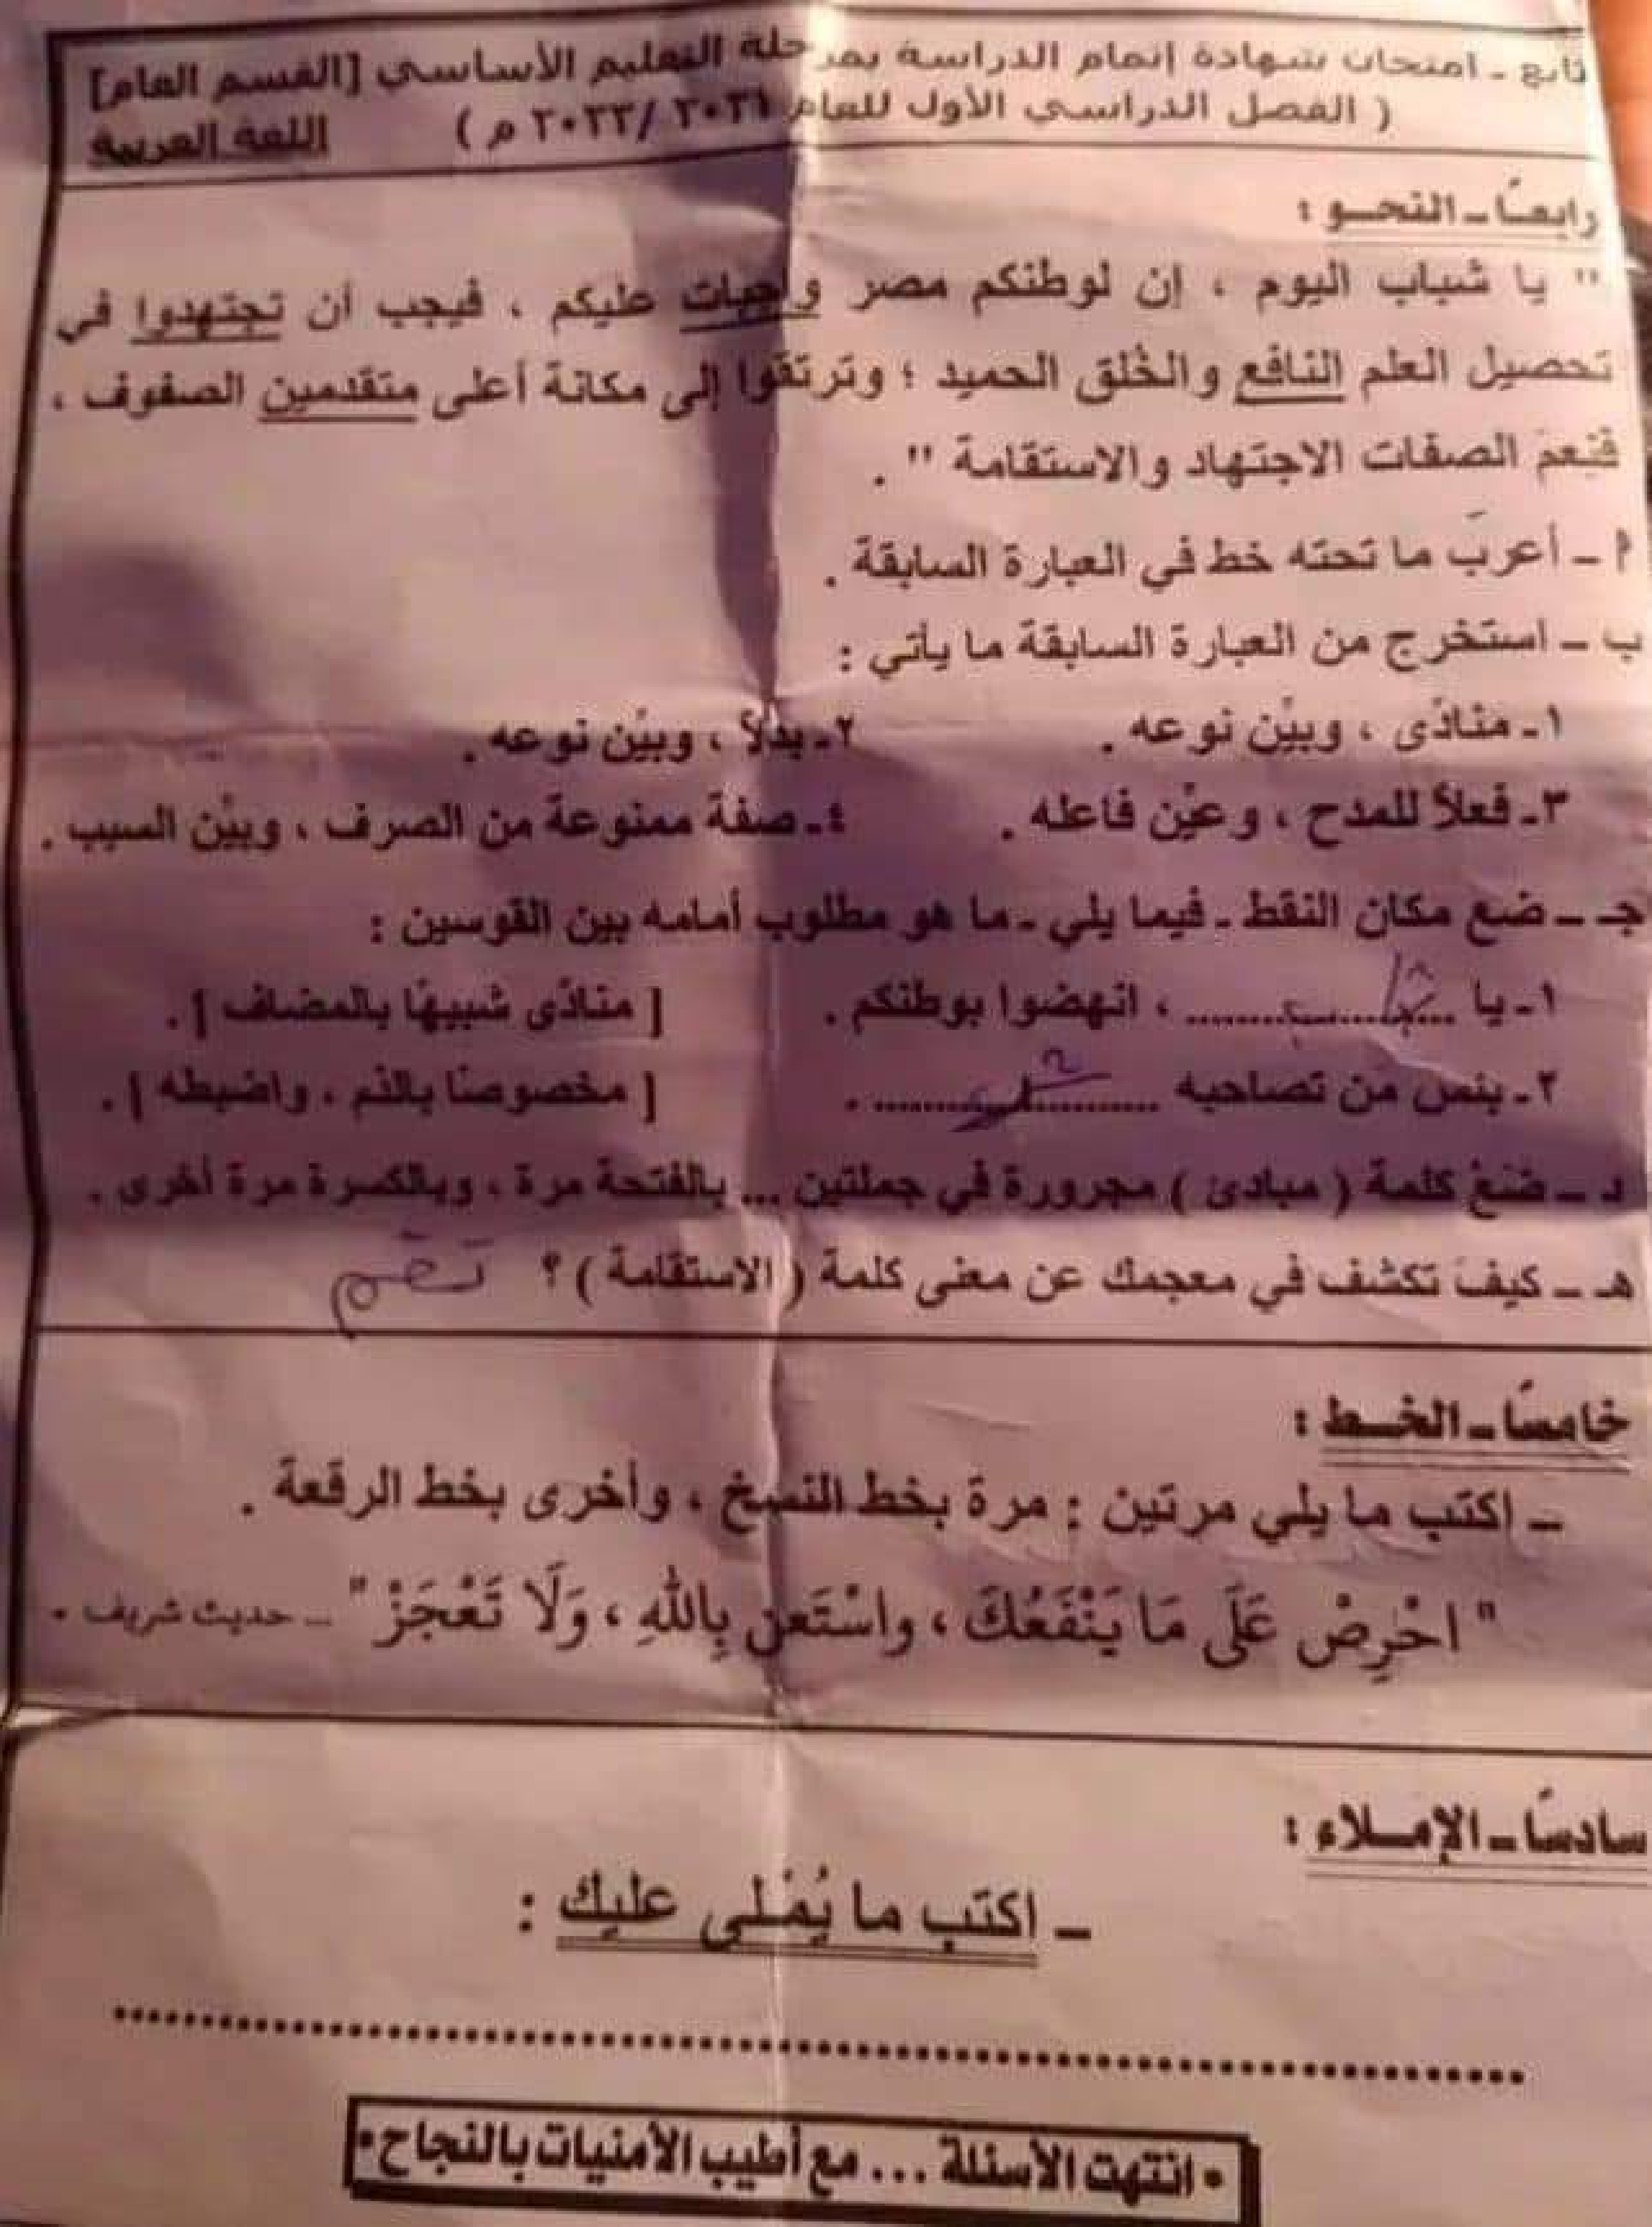 تابع ـ امتحان شهادة إتمام الدراسة بمرحلة التعليم الأساسي [القسم العام]
( الفصل الدراسي الأول للعام ٢٠٢١ /٢٠٢٢ م ) اللغة العربية
رابعًا ـ النحو :
" يا شباب اليوم ، إن لوطنكم مصر واجبات عليكم ، فيجب أن تجتهدوا في
تحصيل العلم النافع والخُلق الحميد ؛ وترتقوا إلى مكانة أعلى متقدمين الصفوف ،
فنِعمَ الصفات الاجتهاد والاستقامة " .
أ ـ أعربَ ما تحته خط في العبارة السابقة .
ب ـ استخرج من العبارة السابقة ما يأتي :
١ـ منادًى ، وبيِّن نوعه . ٢ـ بدلاً ، وبيِّن نوعه .
٣ـ فعلاً للمدح ، وعيِّن فاعله . ٤ـ صفة ممنوعة من الصرف ، وبيِّن السبب .
جـ ـ ضع مكان النقط ـ فيما يلي ـ ما هو مطلوب أمامه بين القوسين :
١ـ يا .................. ، انهضوا بوطنكم . [ منادًى شبيهًا بالمضاف ] .
٢ـ بئس مَن تصاحبه .................. . [ مخصوصًا بالذم ، واضبطه ] .
د ـ ضَعْ كلمة ( مبادئ ) مجرورة في جملتين ... بالفتحة مرة ، وبالكسرة مرة أخرى .
هـ ـ كيفَ تكشف في معجمك عن معنى كلمة ( الاستقامة ) ؟
خامسًا ـ الخـط :
ـ اكتب ما يلي مرتين : مرة بخط النسخ ، وأخرى بخط الرقعة .
" احْرِصْ عَلَى مَا يَنْفَعُكَ ، واسْتَعن بِاللهِ ، وَلَا تَعْجَزْ " ـ حديث شريف .
سادسًا ـ الإملاء :
ـ اكتب ما يُمْلى عليك :
• انتهت الأسئلة ... مع أطيب الأمنيات بالنجاح •